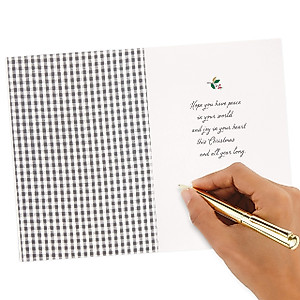 Hope you have peace
in your world
and joy in your heart
this Christmas
and all year long.